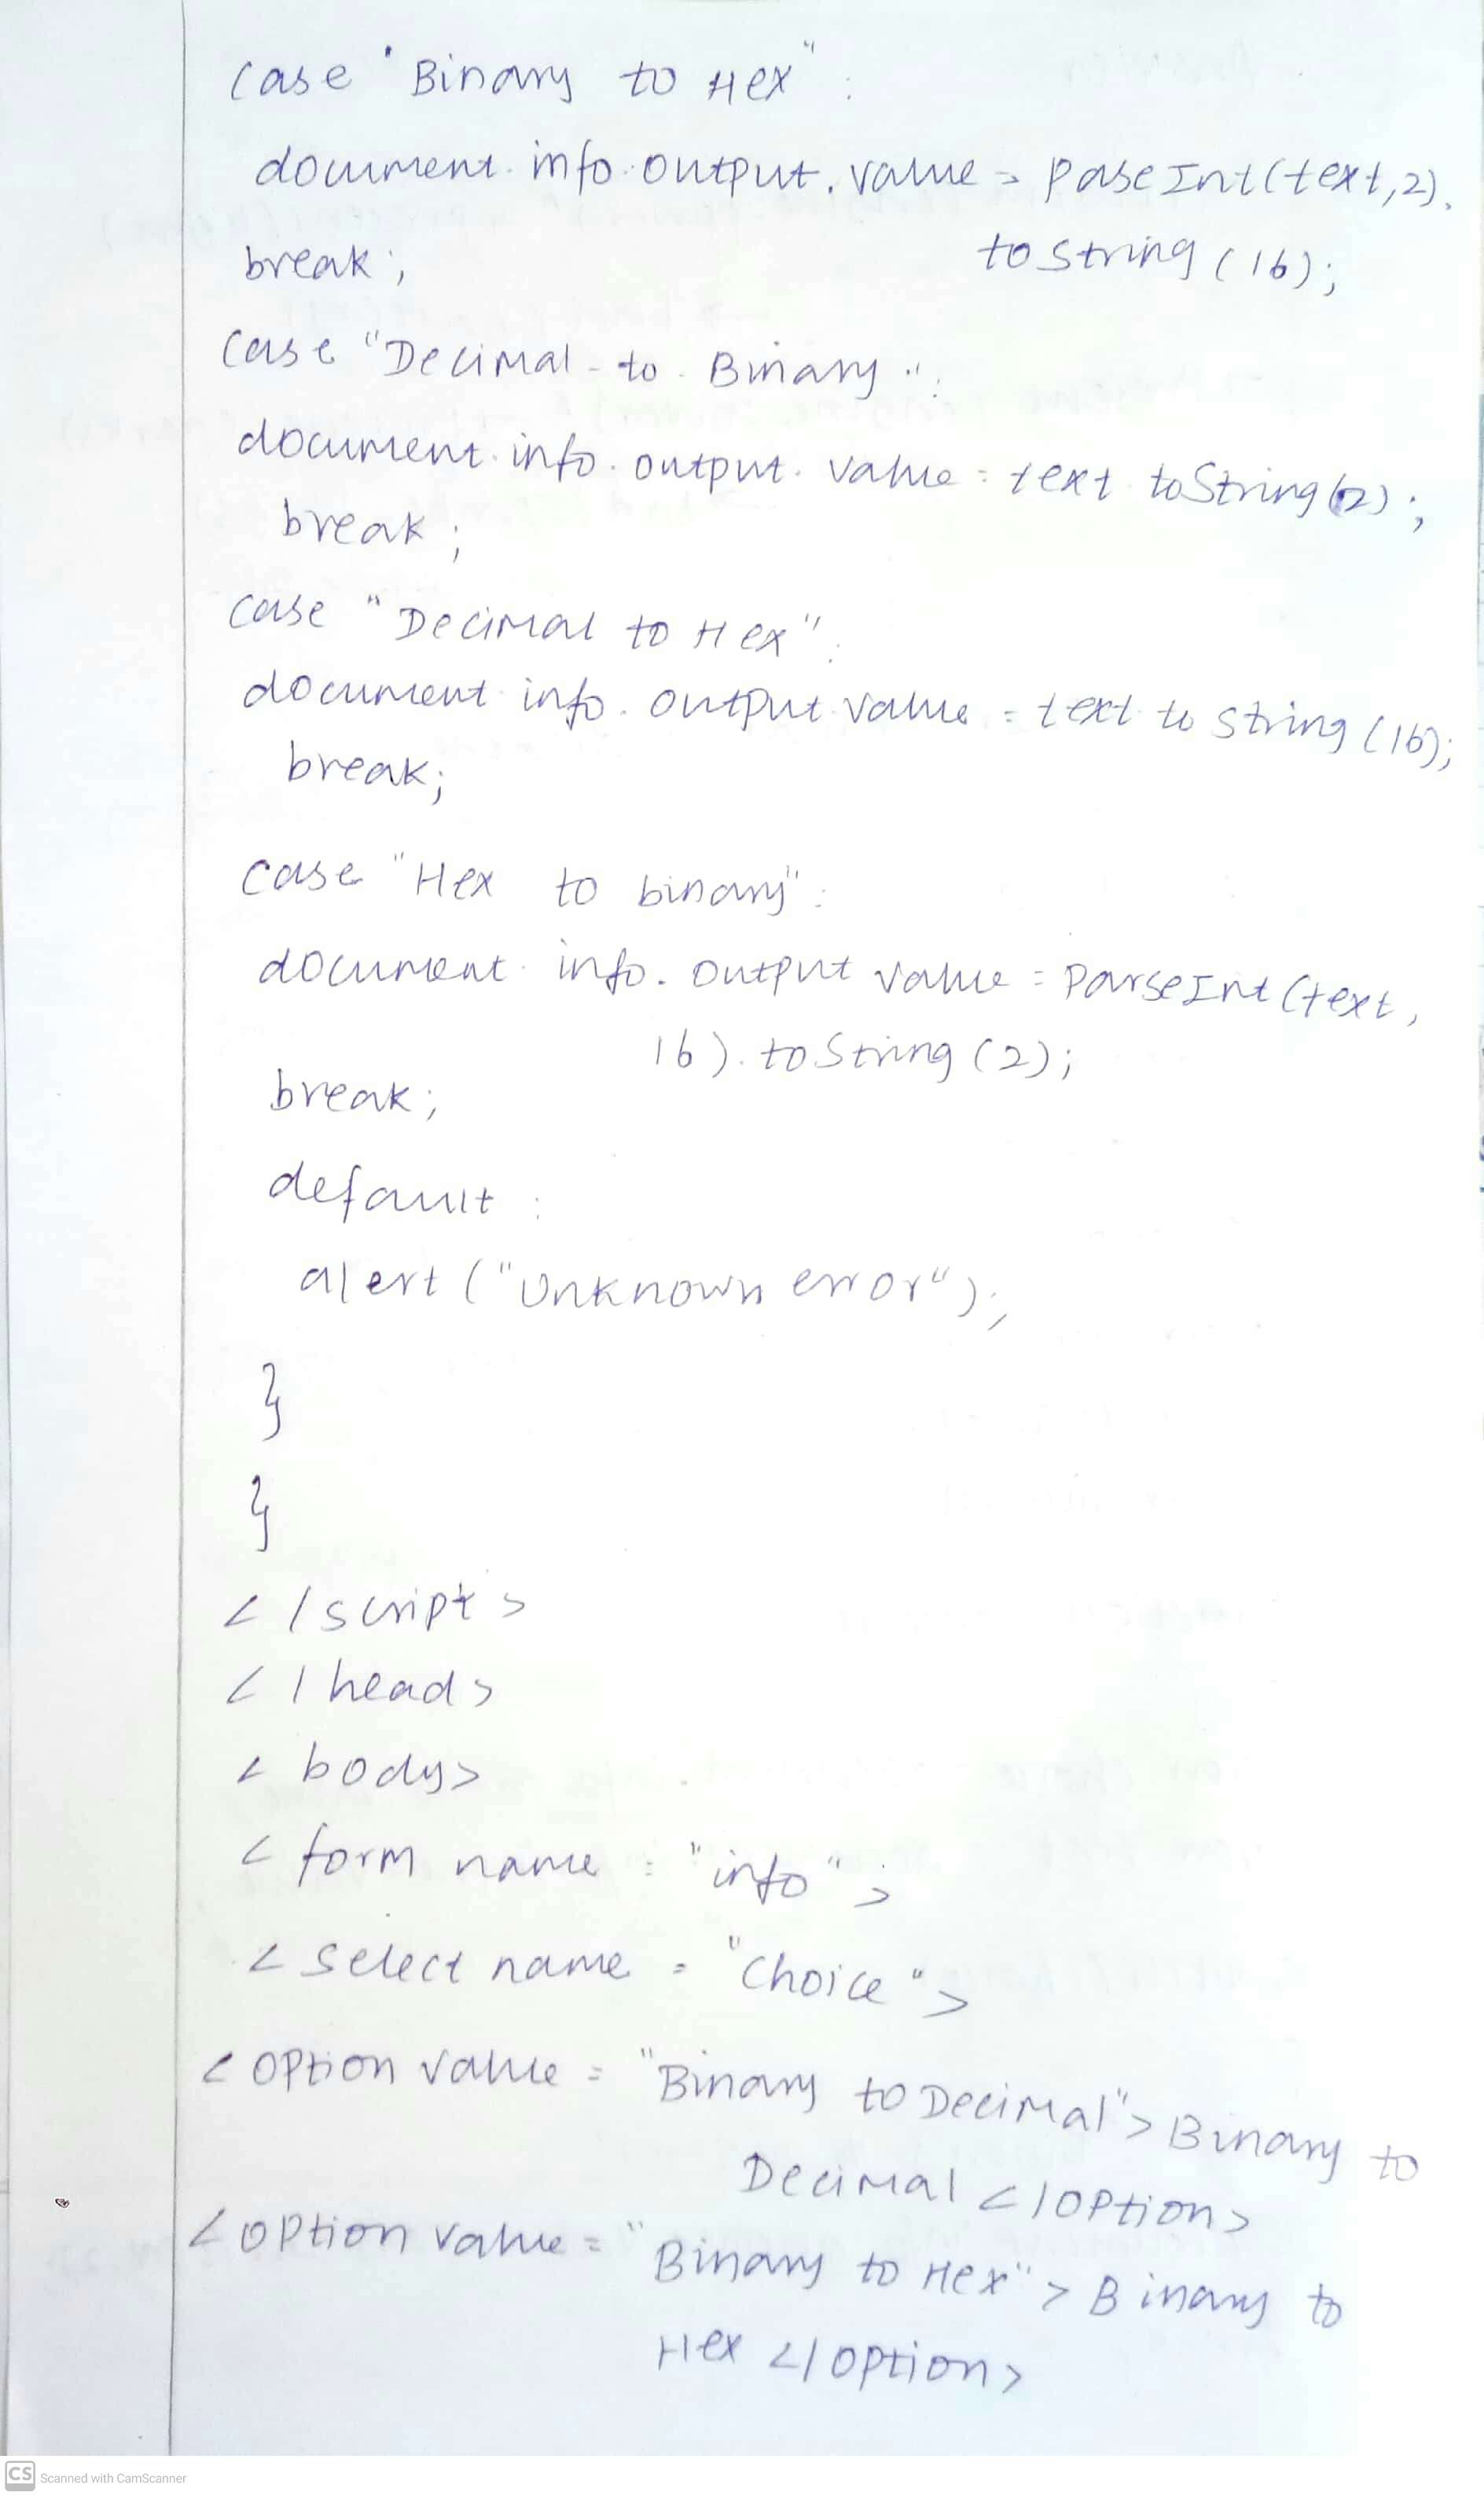 case "Binary to Hex":
document.info.output.value = paseInt(text,2).
toString(16);
break;
case "Decimal to Binary":
document.info.output.value = text toString(2);
break;
case "Decimal to Hex":
document info.output value = text to string (16);
break;
case "Hex to binary":
document info.output value = parseInt(text,
16).toString(2);
break;
default:
alert("Unknown error");
}
}
</script>
</head>
<body>
<form name = "info">
<select name = "choice">
<option value = "Binary to Decimal">Binary to
Decimal </option>
<option value = "Binary to Hex">Binary to
Hex </option>
CS Scanned with CamScanner